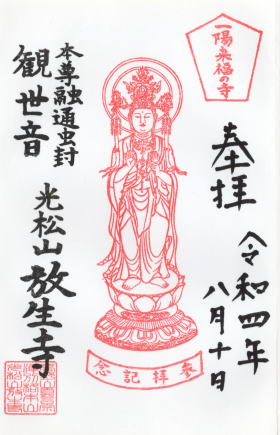 一陽来福の寺
奉拝
令和四年
八月十日
参拝記念
本尊融通虫封
観世音
光松山放生寺